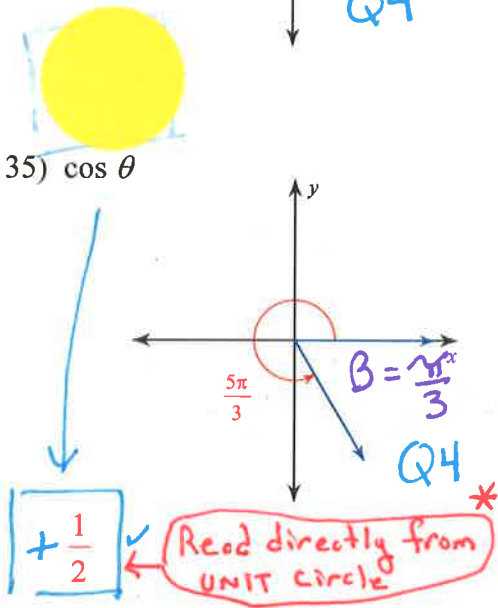 Q4
35) cos θ
y
x
5π/3
B = π/3
Q4
*
+ 1/2 ✓
Read directly from
UNIT circle